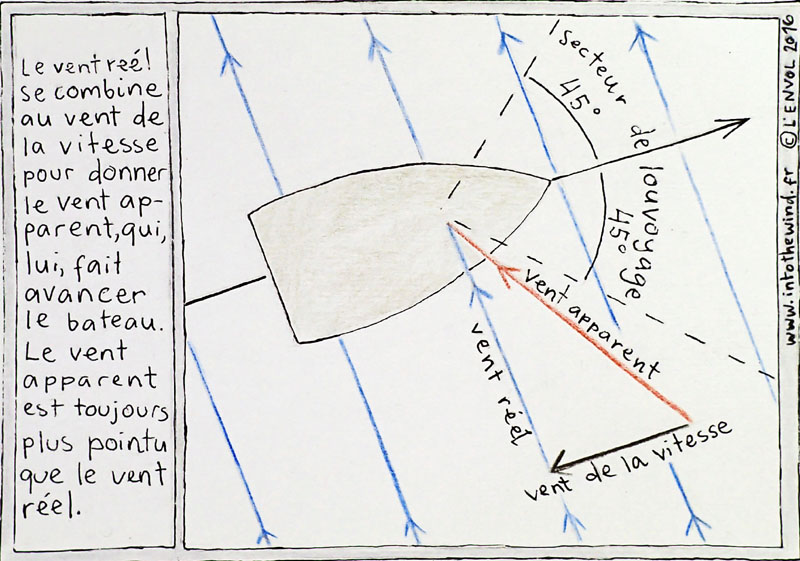 Le vent réel
se combine
au vent de
la vitesse
pour donner
le vent ap-
parent, qui,
lui, fait
avancer
le bateau.
Le vent
apparent
est toujours
plus pointu
que le vent
réel.
1 secteur de louvoyage
45°
45°
vent apparent
vent réel
vent de la vitesse
www.intothewind.fr © L'ENVOL 2016